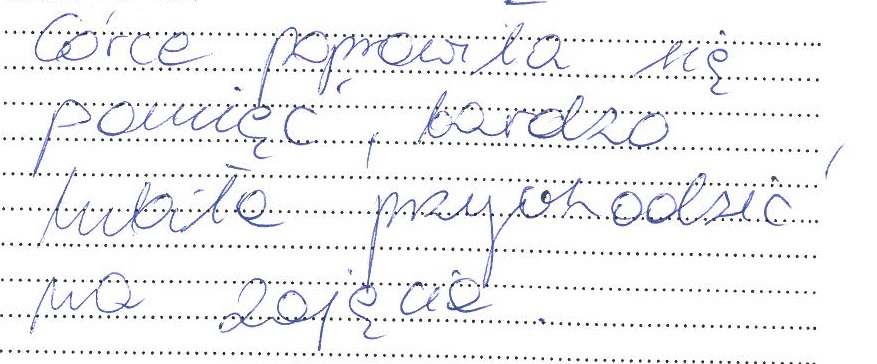 Córce poprawiła się
pamięć, bardzo
lubiła przychodzić
na zajęcia.